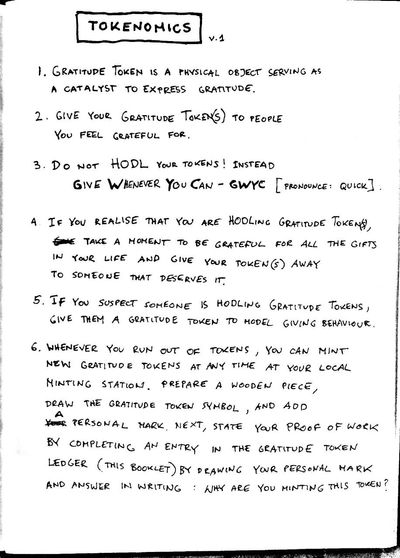 TOKENOMICS v.1
1. GRATITUDE TOKEN IS A PHYSICAL OBJECT SERVING AS
A CATALYST TO EXPRESS GRATITUDE.
2. GIVE YOUR GRATITUDE TOKEN(S) TO PEOPLE
YOU FEEL GRATEFUL FOR.
3. DO NOT HODL YOUR TOKENS! INSTEAD
GIVE WHENEVER YOU CAN - GWYC [PRONOUNCE: QUICK].
4 IF YOU REALISE THAT YOU ARE HODLING GRATITUDE TOKEN(S),
TAKE A MOMENT TO BE GRATEFUL FOR ALL THE GIFTS
IN YOUR LIFE AND GIVE YOUR TOKEN(S) AWAY
TO SOMEONE THAT DESERVES IT.
5. IF YOU SUSPECT SOMEONE IS HODLING GRATITUDE TOKENS,
GIVE THEM A GRATITUDE TOKEN TO MODEL GIVING BEHAVIOUR.
6. WHENEVER YOU RUN OUT OF TOKENS, YOU CAN MINT
NEW GRATITUDE TOKENS AT ANY TIME AT YOUR LOCAL
MINTING STATION. PREPARE A WOODEN PIECE,
DRAW THE GRATITUDE TOKEN SYMBOL, AND ADD
A PERSONAL MARK. NEXT, STATE YOUR PROOF OF WORK
BY COMPLETING AN ENTRY IN THE GRATITUDE TOKEN
LEDGER (THIS BOOKLET) BY DRAWING YOUR PERSONAL MARK
AND ANSWER IN WRITING: WHY ARE YOU MINTING THIS TOKEN?